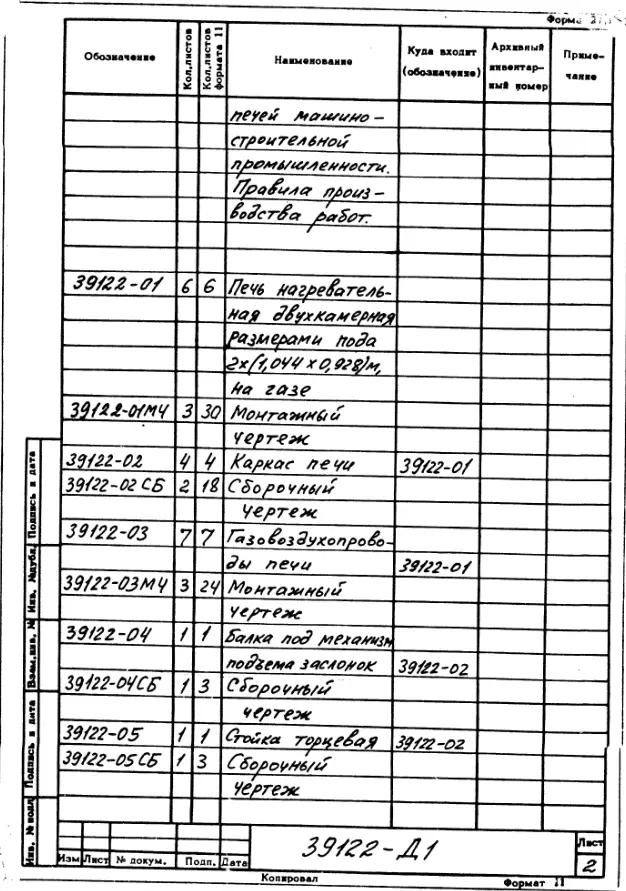 Форма
Обозначение Кол.листов Кол.листов формата 11 Наименование Куда входит (обозначение) Архивный инвентарный номер Приме-чание
печей машино-
строительной
промышленности.
Правила произ-
водства работ.
39122-01 6 6 Печь нагреватель-
ная двухкамерная
размерами пода
2х(1,044 х 0,928)м,
на газе
39122-01МЧ 3 30 Монтажный
чертеж
39122-02 4 4 Каркас печи 39122-01
39122-02 СБ 2 18 Сборочный
чертеж
39122-03 7 7 Газовоздухопрово-
ды печи 39122-01
39122-03МЧ 3 24 Монтажный
чертеж
39122-04 1 1 Балка под механизм
подъема заслонок 39122-02
39122-04СБ 1 3 Сборочный
чертеж
39122-05 1 1 Стойка торцевая 39122-02
39122-05СБ 1 3 Сборочный
чертеж
Подпись и дата
Инв. №дубл.
Взам.инв. №
Подпись и дата
Инв. №подл
39122-Д1
Лист
2
Изм Лист № докум. Подп. Дата
Копировал Формат 11